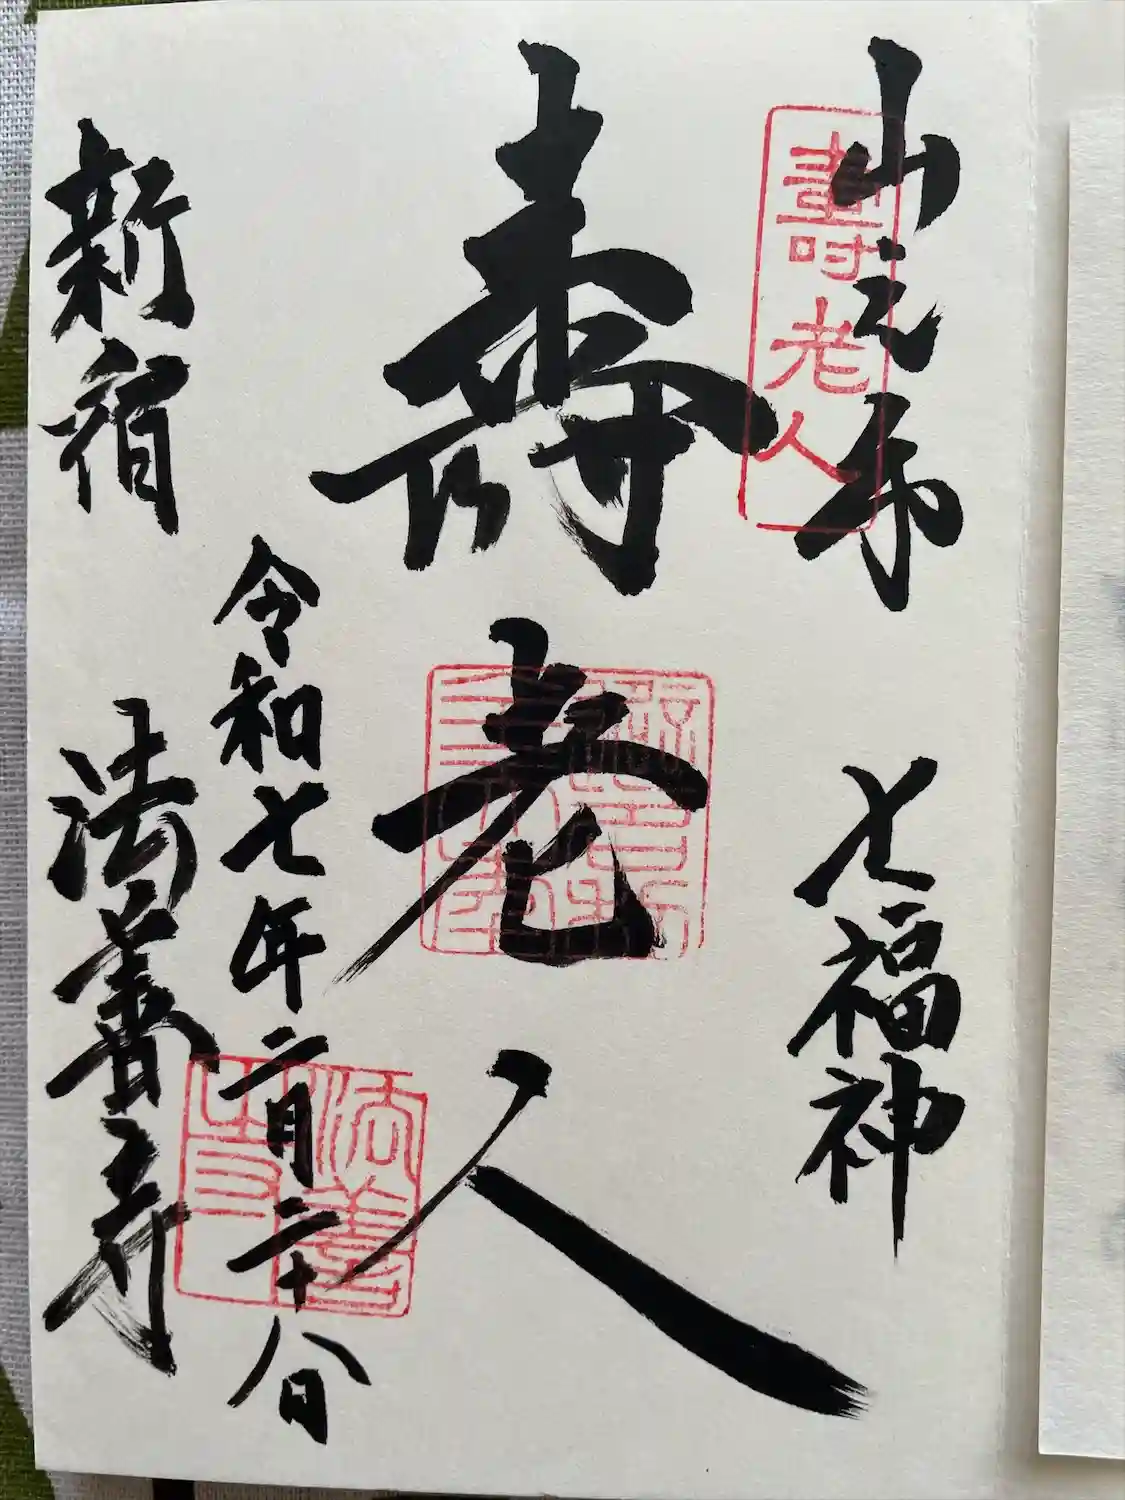 山之手
七福神
壽老人
寿老人
令和七年二月二十八日
新宿
法善寺
法善
寺印